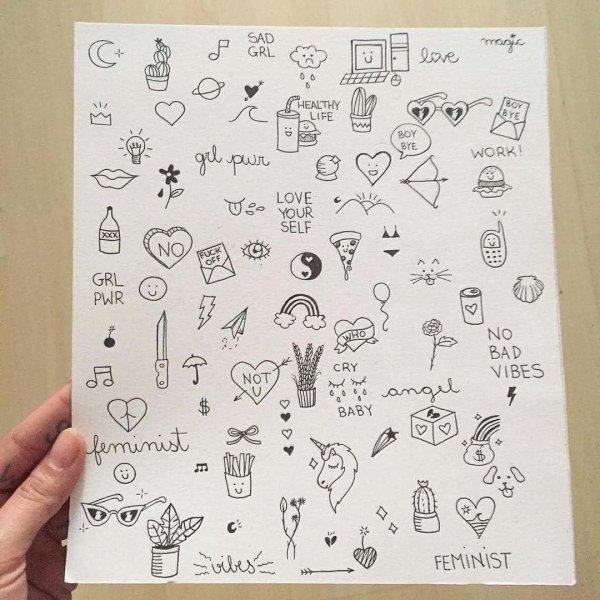 SAD
GRL
love
magic
HEALTHY
LIFE
BOY
BYE
BOY
BYE
grl pwr
WORK!
LOVE
YOUR
SELF
XXX
NO
FUCK
OFF
GRL
PWR
WHO
NO
BAD
VIBES
NOT
U
CRY
BABY
angel
$
feminist
$
vibes
FEMINIST